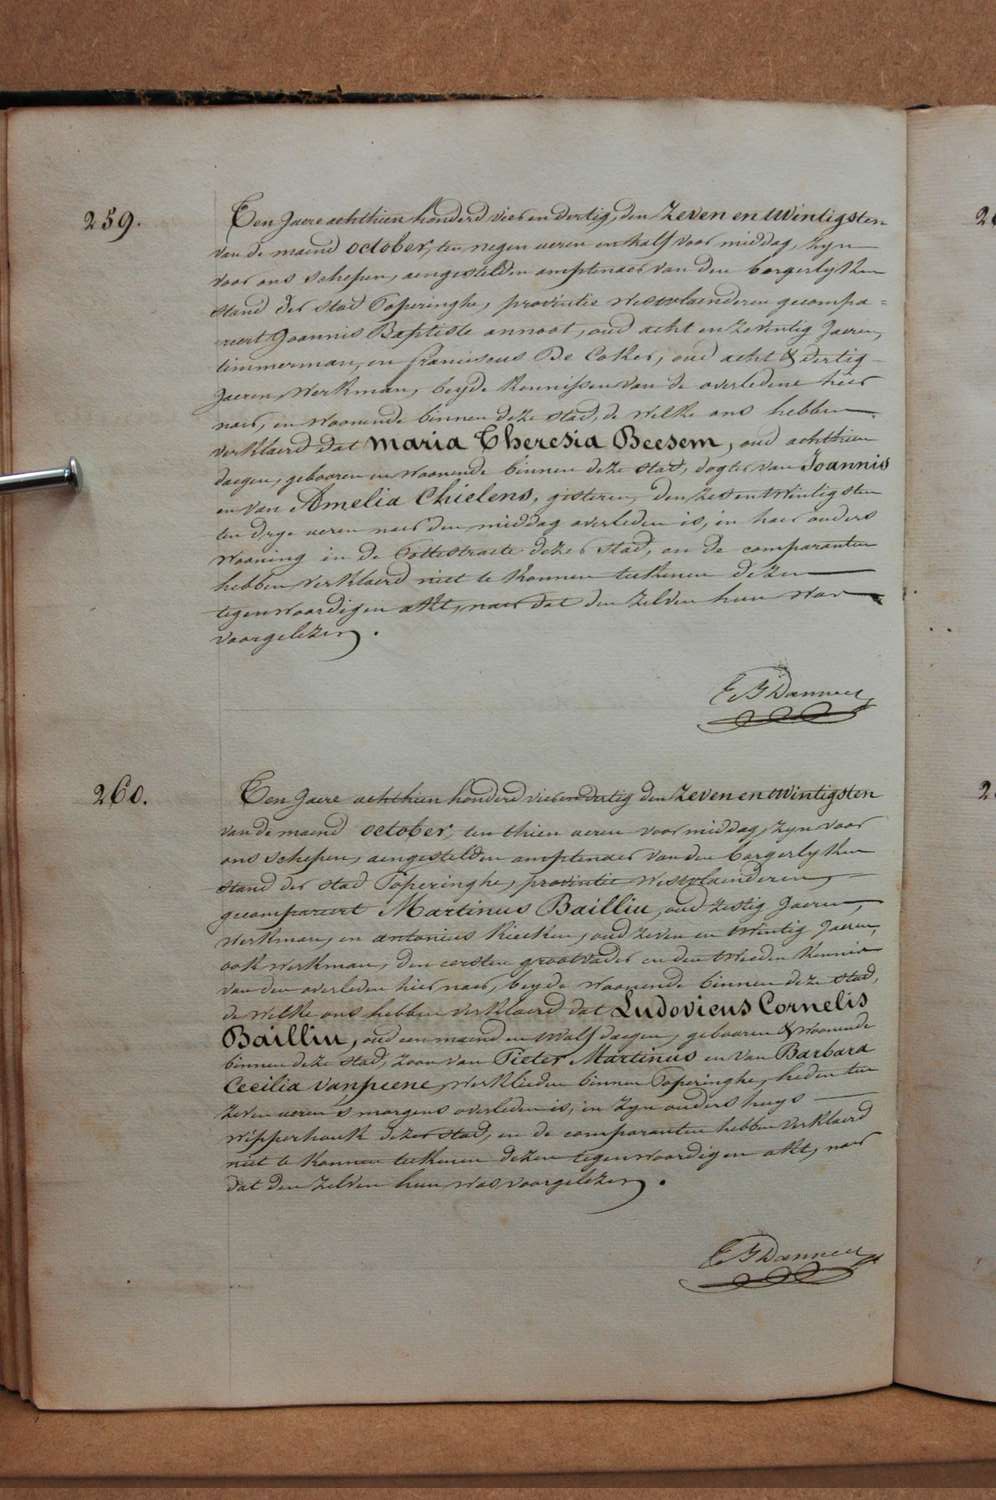 259.
Ten Jaere achthien honderd vier en dertig, den zeven en twintigsten
van de maend october, ten negen ueren en half voor middag, zyn
voor ons schepen, aengestelden amptenaer van den borgerlyken
stand der stad Poperinghe, provintie westvlaenderen gecompa=
reert Joannis Baptiste annoot, oud acht en zeventig Jaeren,
timmerman, en franciscus De Coker, oud acht & dertig
Jaeren, werkman, beyde kennissen van de overledene hier
naer, en woonende binnen deze stad, de welke ons hebben
verklaerd dat maria Theresia Beesem, oud achthien
daegen, gebooren en woonende binnen deze stad, dogter van Joannis
en van Amelia Chielens, gisteren, den zes en twintigsten
ten drye ueren naer den middag overleden is, in haer ouders
wooning in de Pottestraete dezer stad, en de comparanten
hebben verklaerd niet te konnen teekenen dezen
tegenwoordigen akt, naer dat den zelven hun was
voorgelezen.
260.
Ten Jaere achthien honderd vier en dertig den zeven en twintigsten
van de maend october, ten thien ueren voor middag, zyn voor
ons schepen, aengestelden amptenaer van den borgerlyken
stand der stad Poperinghe, provintie westvlaenderen,
gecompareert Martinus Bailliu, oud zestig Jaeren,
werkman, en antonius Kiecken, oud zeven en twintig Jaeren,
ook werkman, den eersten grootvader en den tweeden kennis
van den overleden hier naer, beyde woonende binnen deze stad,
de welke ons hebben verklaerd dat Ludovicus Cornelis
Bailliu, oud een maend en twalf daegen, gebooren & woonende
binnen deze stad, zoon van Pieter Martinus en van Barbara
Cecilia vanpeene, werklieden binnen Poperinghe, heden ten
zeven ueren s morgens overleden is, in zyn ouders huys
wipperhoek dezer stad, en de comparanten hebben verklaerd
niet te konnen teekenen dezen tegenwoordigen akt, naer
dat den zelven hun was voorgelezen.